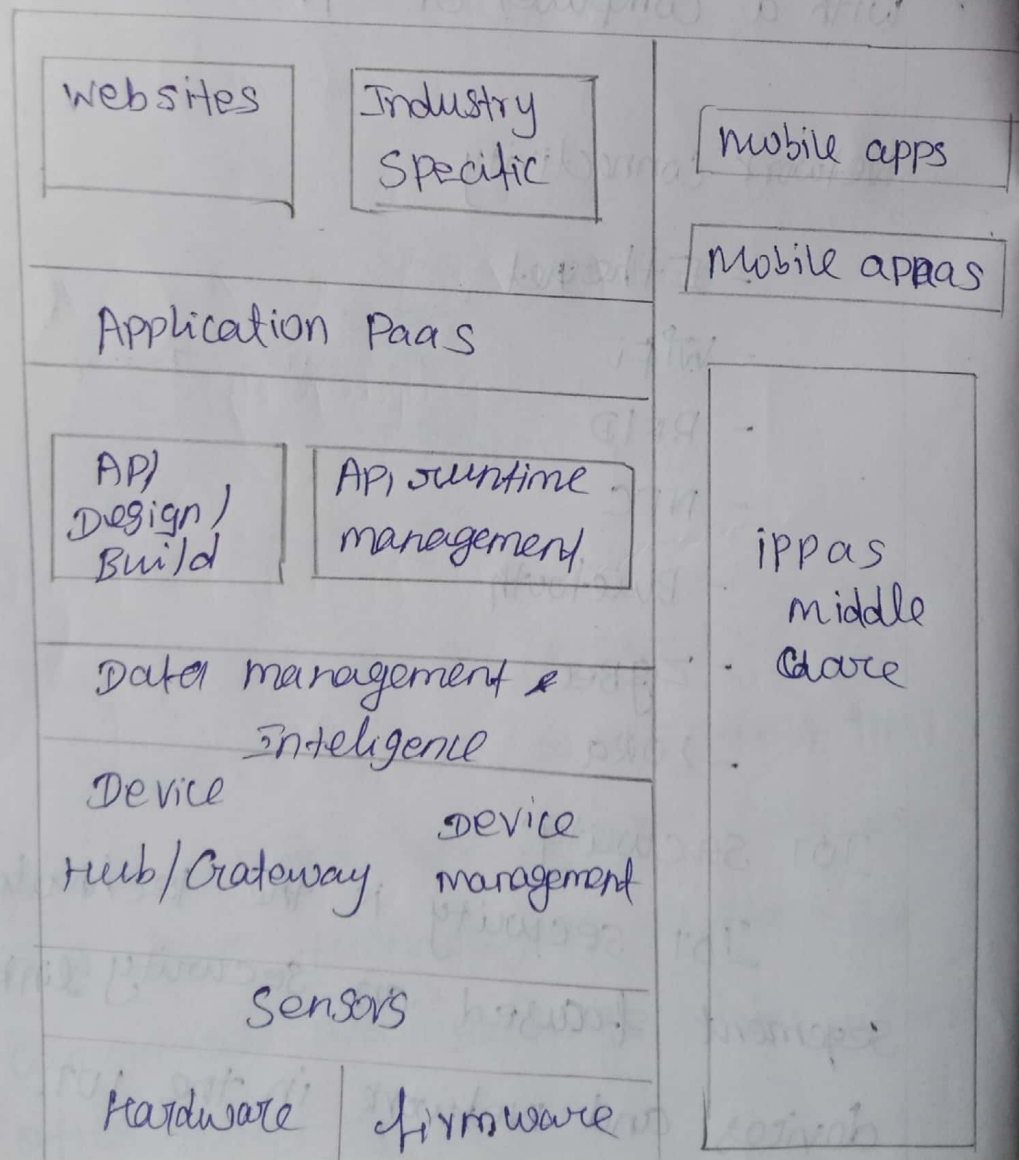 with a compute
websites
Industry
Specific
mobile apps
Mobile appaas
Application Paas
API
Design/
Build
API runtime
management
ippas
middle
Data management &
Inteligence
Device
Hub/Gateway
Device
management
Sensors
Hardware
firmware